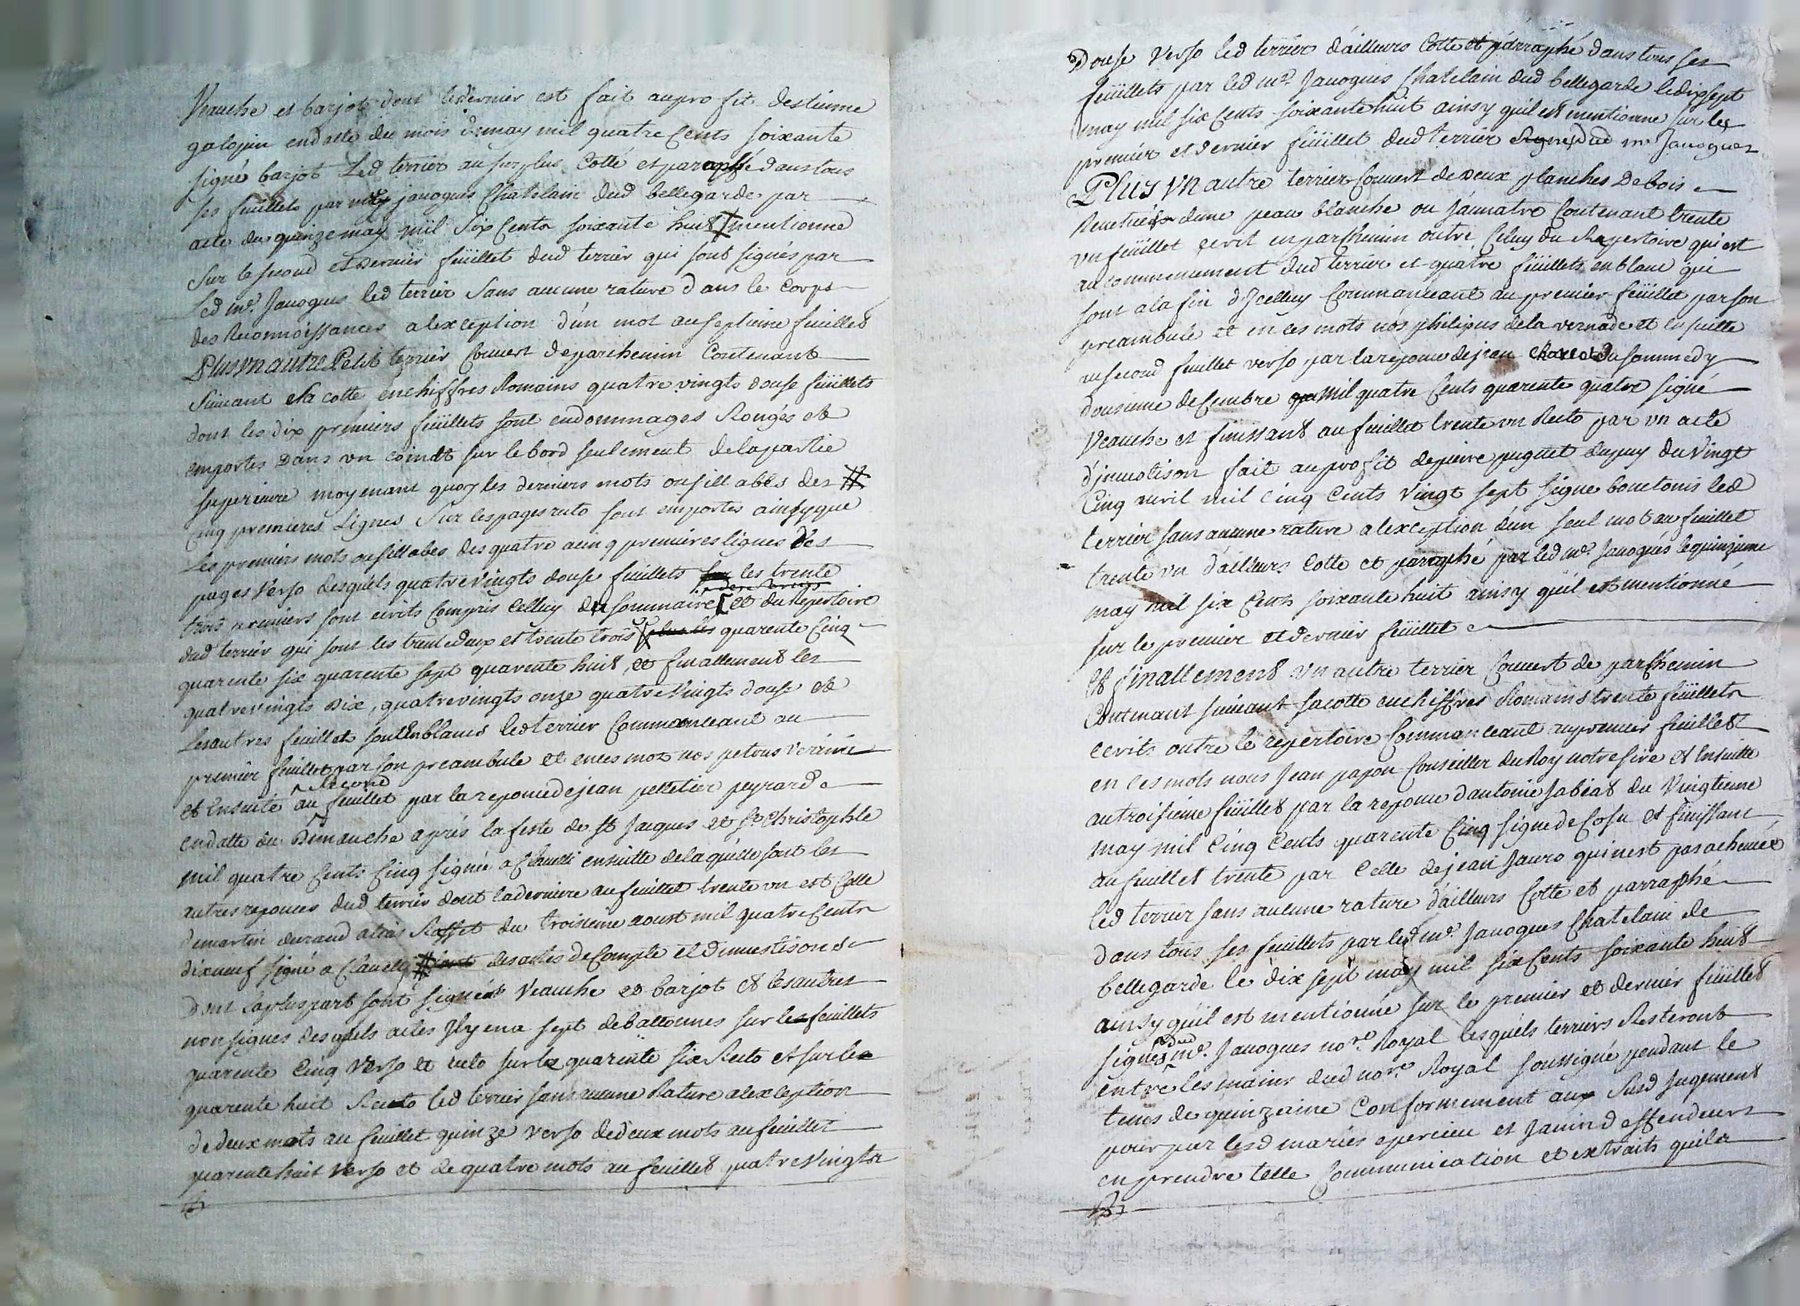 Veauche et barjot dont le dernier est fait au profit destienne
galopin en datte du mois de may mil quatre Cents soixante
signé barjot Led terrier au surplus Cotté et paraphé dans tous
ses feuillets par me janoques Chatelain dud bellegarde par
acte du quinze may mil Six Cents soixante huit mentionné
Sur le second et dernier feüillet dud terrier qui sont signés par
Led mr. Janoques led terrier Sans aucune rature dans le Corps
des Reconnoissances a lexception d'un mot au septieme feuillet
Plus Vn autre Petit terrier Couvert de parchemin Contenant
Suivant Sa cotte en chiffres Romains quatre vingts douse feüillets
dont les dix premiers feüillets sont endommagés Rongés et
emportes Dans un coin sur le bord seulement de la partie
superieure moyenant quoy les derniers mots ou sillabes des
Cinq premieres Lignes Sur les pages recto sont emportes ainsy que
Les premiers mots ou sillabes des quatre a cinq premieres lignes des
pages Verso desquels quatre Vingts douse feuillets les trente
trois premiers sont ecrits Compris Celluy du sommaire et du Repertoire
dud terrier qui sont les trente deux et trente trois quarente Cinq
quarente six quarente sept quarente huit, et finallement les
quatre vingts Dix, quatre vingts onze quatre Vingts douse et
Les autres feuillets sont En blancs led terrier Commanceant au
premier feuillet par son preambule et en ces mots nos petrus Verrerie
et Ensuite au second feuillet par la reponce de jean pelletier peyrard
en datte du Dimanche aprés la feste de st Jacques et st Christophle
mil quatre Cents Cinq signé a Chauelli ensuitte de laquelle sont les
autres reponces dud terrier dont la derniere au feuillet trente un est Celle
de martin durand alias Raffet du troisieme aoust mil quatre Cents
dixneuf signé a Chauelly des actes de Compte et Dinuestison
dont la plus part sont signés Veauche et barjot et les autres
non signés desquels actes Il y en a sept de battonnes sur les feuillets
quarente Cinq Verso et recto sur le quarente six Recto et sur le
quarente huit Recto led terrier sans aucune Rature a lexception
de deux mots au feuillet quinze verso de deux mots au feuillet
quarente huit Verso et de quatre mots au feuillet quatre Vingts
Douse Verso led terrier d'ailleurs Cotté et parraphé dans tous ses
feüillets par led mr. Janoques Chatelain dud bellegarde le dix sept
may mil six Cents soixante huit ainsy quil est mentionné sur les
premier et dernier feüillet dud terrier Signé dud mr Janoques
Plus Vn autre terrier Couvert de Deux planches De bois
Revetües dune peau blanche ou Jaunatre Contenant trente
vn feüillet ecrit en parchemin outre Celuy du Repertoire qui est
au commencement dud terrier et quatre feüillets en blanc qui
sont a la fin d'Jcelluy Commanceant au premier feüillet par son
preambule et en ces mots nos philipus de la vernade et ensuitte
au second feuillet verso par la reponce de jean du sommedy
dousieme decembre mil quatre Cents quarente quatre signé
Veauche et finissant au feuillet trente un Recto par Vn acte
d'inuestison fait au profit de pierre puguet dupuy du Vingt
Cinq avril mil Cinq Cents Vingt sept signé bouetonis led
terrier sans aucune rature a lexception d'un seul mot au feuillet
trente vn d'ailleurs Cotté et parraphé par led mr. Janoqués le quinzieme
may mil six Cents soixante huit ainsy quil est mentionné
sur le premier et dernier feüillet
et finallement Vn autre terrier Couvert de parchemin
Contenant suivant sa cotte en chiffres Romains trente feüillets
ecrits outre le repertoire Commanceant au premier feuillet
en ces mots nous Jean papon Conseiller du Roy notre sire et Ensuitte
au troisieme feüillet par la reponce d'antoine Jabeat du Vingtieme
may mil Cinq Cents quarente Cinq signé de Cosu et finissant
au feuillet trente par Celle de jean Jauro qui nest pas achevée
led terrier sans aucune rature d'ailleurs Cotté et parraphé
dans tous ses feuillets par led mr. Janoques Chatelain de
bellegarde le dix sept may mil six Cents soixante huit
ainsy quil est mentionné sur le premier et dernier feuillet
signés dud mr. Janoques nore. Royal lesquels terriers Resteront
entre les mains dud nore. Royal soussigné pendant le
tems de quinzaine Conformement aux Susd Jugement
pour par lesd mariés epercieu et Janin deffendeurs
en prendre telle Communication et extraits quils